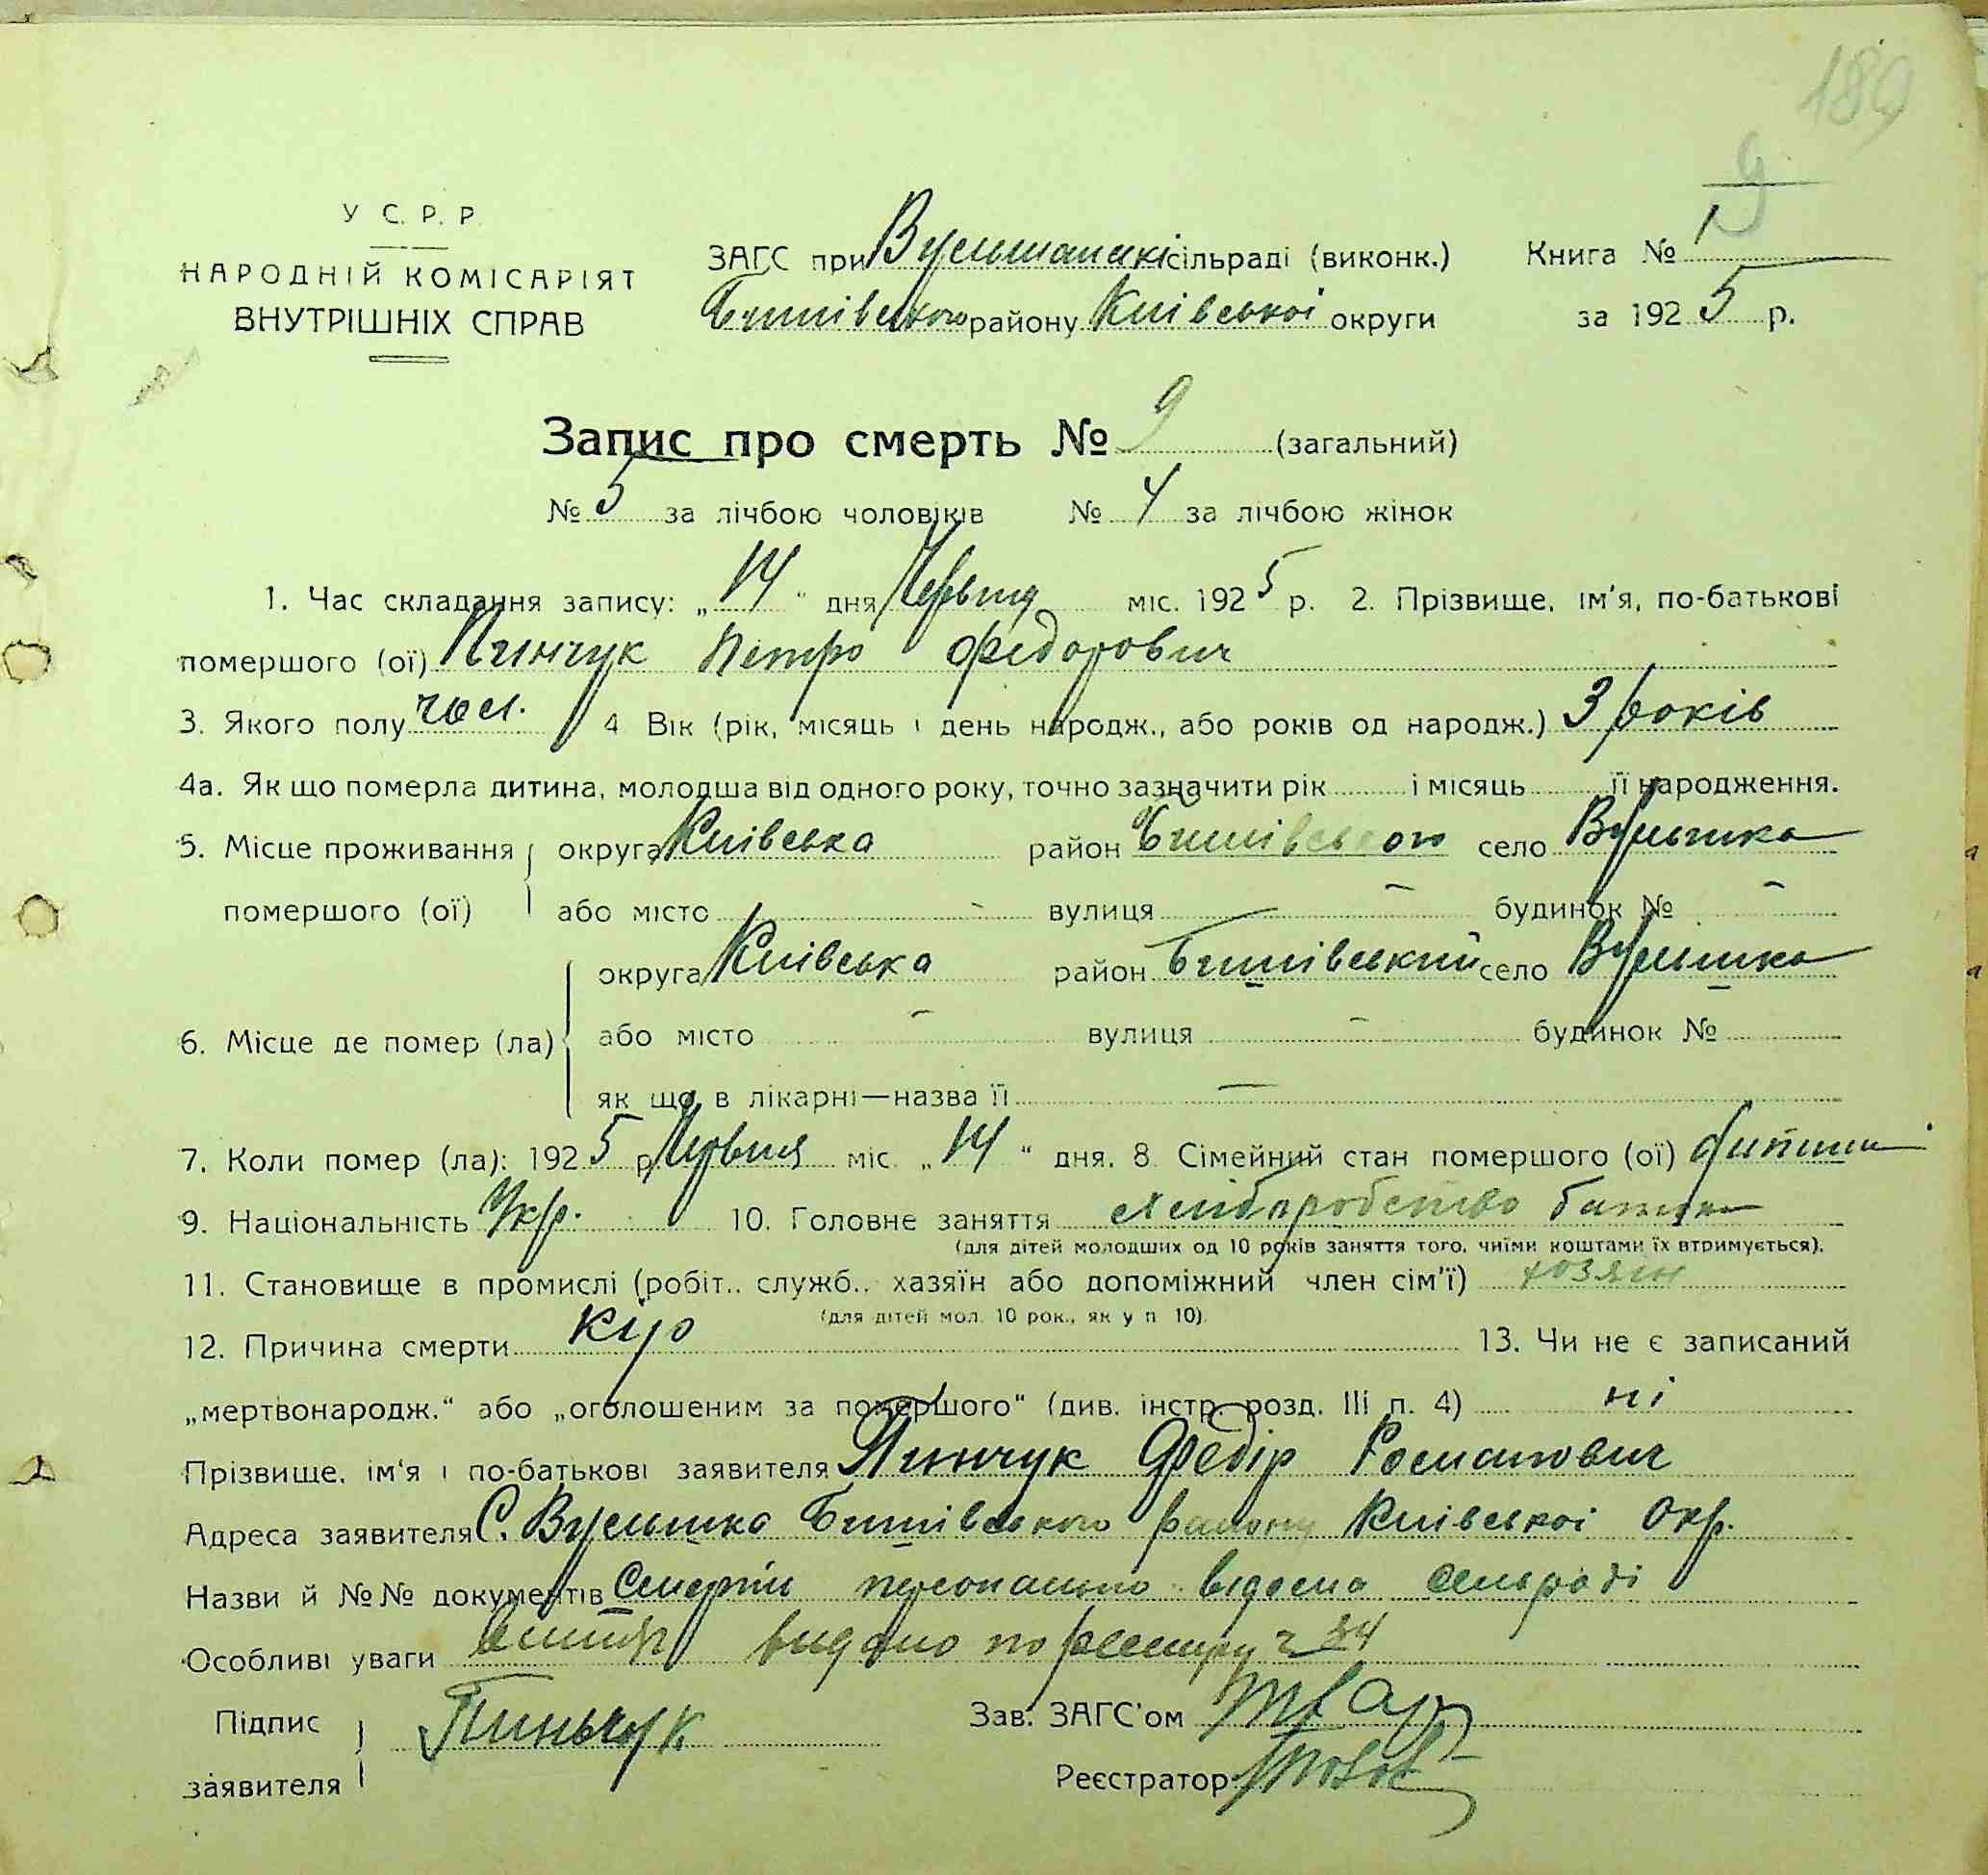 189
9
У С. Р. Р.
НАРОДНІЙ КОМІСАРІЯТ
ВНУТРІШНІХ СПРАВ
ЗАГС при сільраді (виконк.)
району Київської округи
Книга №
за 1925 р.
Запис про смерть № 9 (загальний)
№ 5 за лічбою чоловіків № 4 за лічбою жінок
1. Час складання запису: „14" дня Червня міс. 1925 р. 2. Прізвище, ім'я, по-батькові
помершого (ої) Пинчук Петро Федорович
3. Якого полу чол. 4 Вік (рік, місяць і день народж., або років од народж.) 3 років
4а. Як що померла дитина, молодша від одного року, точно зазначити рік і місяць її народження.
5. Місце проживання округа Київська район село
помершого (ої) або місто - вулиця - будинок № -
округа Київська район село
6. Місце де помер (ла) або місто - вулиця - будинок №
як що в лікарні—назва її —
7. Коли помер (ла): 1925 р. Червня міс. „14" дня. 8. Сімейний стан помершого (ої)
9. Національність Укр. 10. Головне заняття батька
(для дітей молодших од 10 років заняття того, чиїми коштами їх втримується).
11. Становище в промислі (робіт., служб., хазяїн або допоміжний член сім'ї) хозяин
(для дітей мол. 10 рок., як у п 10).
12. Причина смерти Кур 13. Чи не є записаний
„мертвонародж." або „оголошеним за помершого" (див. інстр. розд. III п. 4) ні
Прізвище, ім'я і по-батькові заявителя Пинчук Федір Романович
Адреса заявителя С. району Київської Окр.
Назви й №№ документів персонально відома сельраді
Особливі уваги видано по 84
Підпис Пиньчук Зав. ЗАГС'ом
заявителя Реєстратор